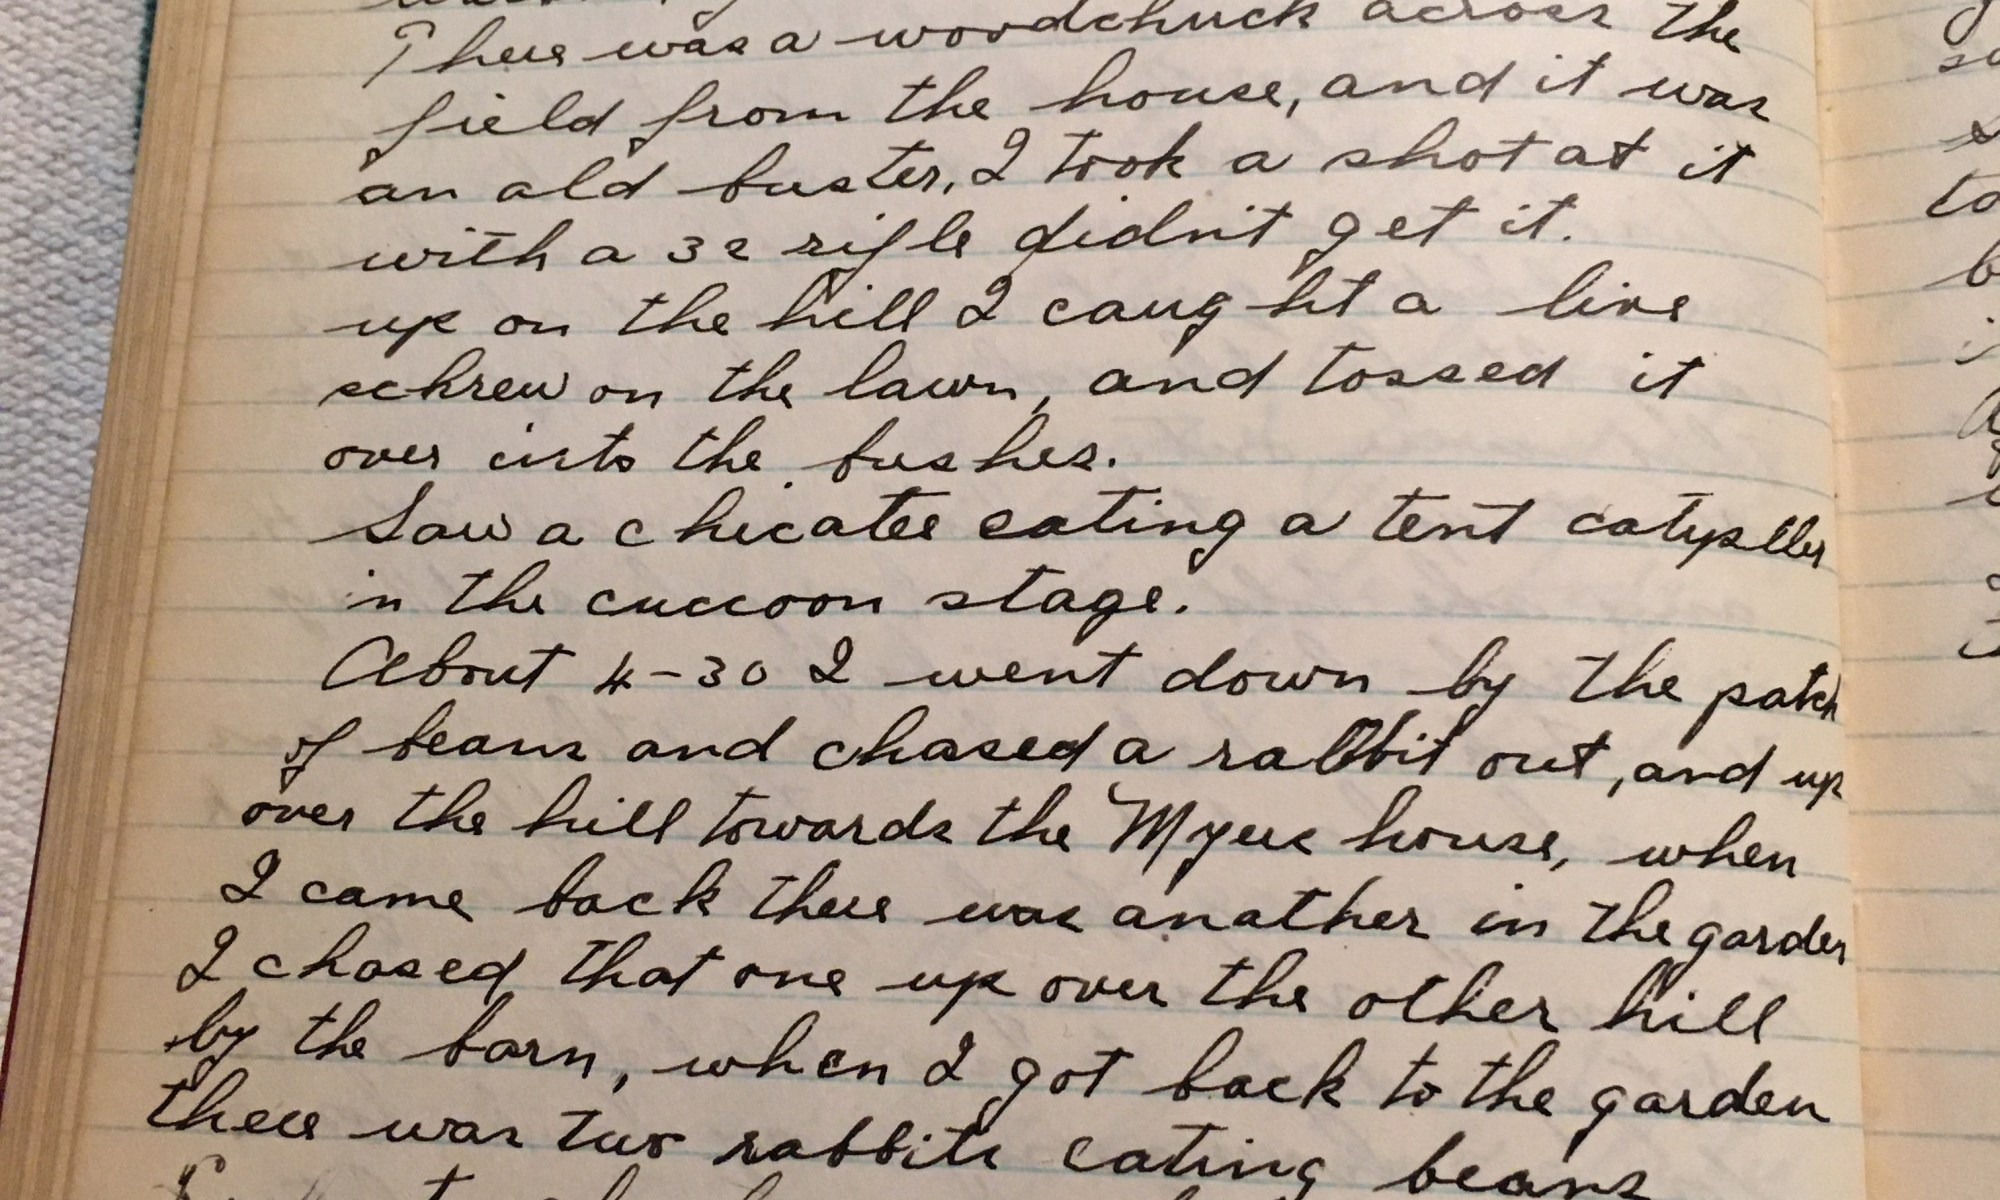 There was a woodchuck across the
field from the house, and it was
an old buster, I took a shot at it
with a 32 rifle didn't get it.
up on the hill I caught a live
schrew on the lawn, and tossed it
over into the bushes.
Saw a chicatee eating a tent catypller
in the cuccoon stage.
About 4-30 I went down by the patch
of beans and chased a rabbit out, and up
over the hill towards the Myers house, when
I came back there was another in the garden
I chased that one up over the other hill
by the barn, when I got back to the garden
there was two rabbits eating beans